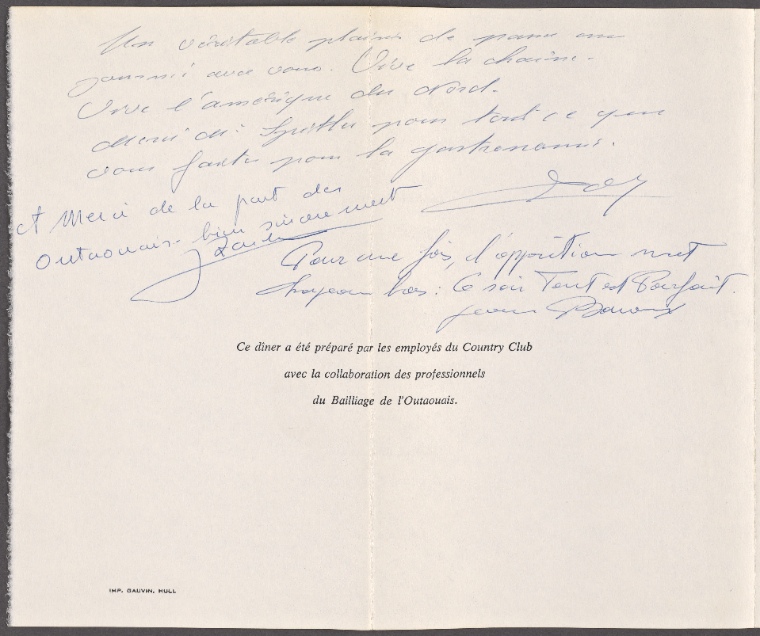 Un véritable plaisir de passer une
journée avec vous. Vive la chaîne.
Vive l'amérique du Nord.
Merci pour tout ce que
vous faites pour la gastronomie.
et Merci de la part des
Outaouais. bien sincèrement
Pour une fois, l'opposition met
chapeau bas : Ce soir Tout est Parfait.
Jean
Ce dîner a été préparé par les employés du Country Club
avec la collaboration des professionnels
du Bailliage de l'Outaouais.
IMP. GAUVIN, HULL